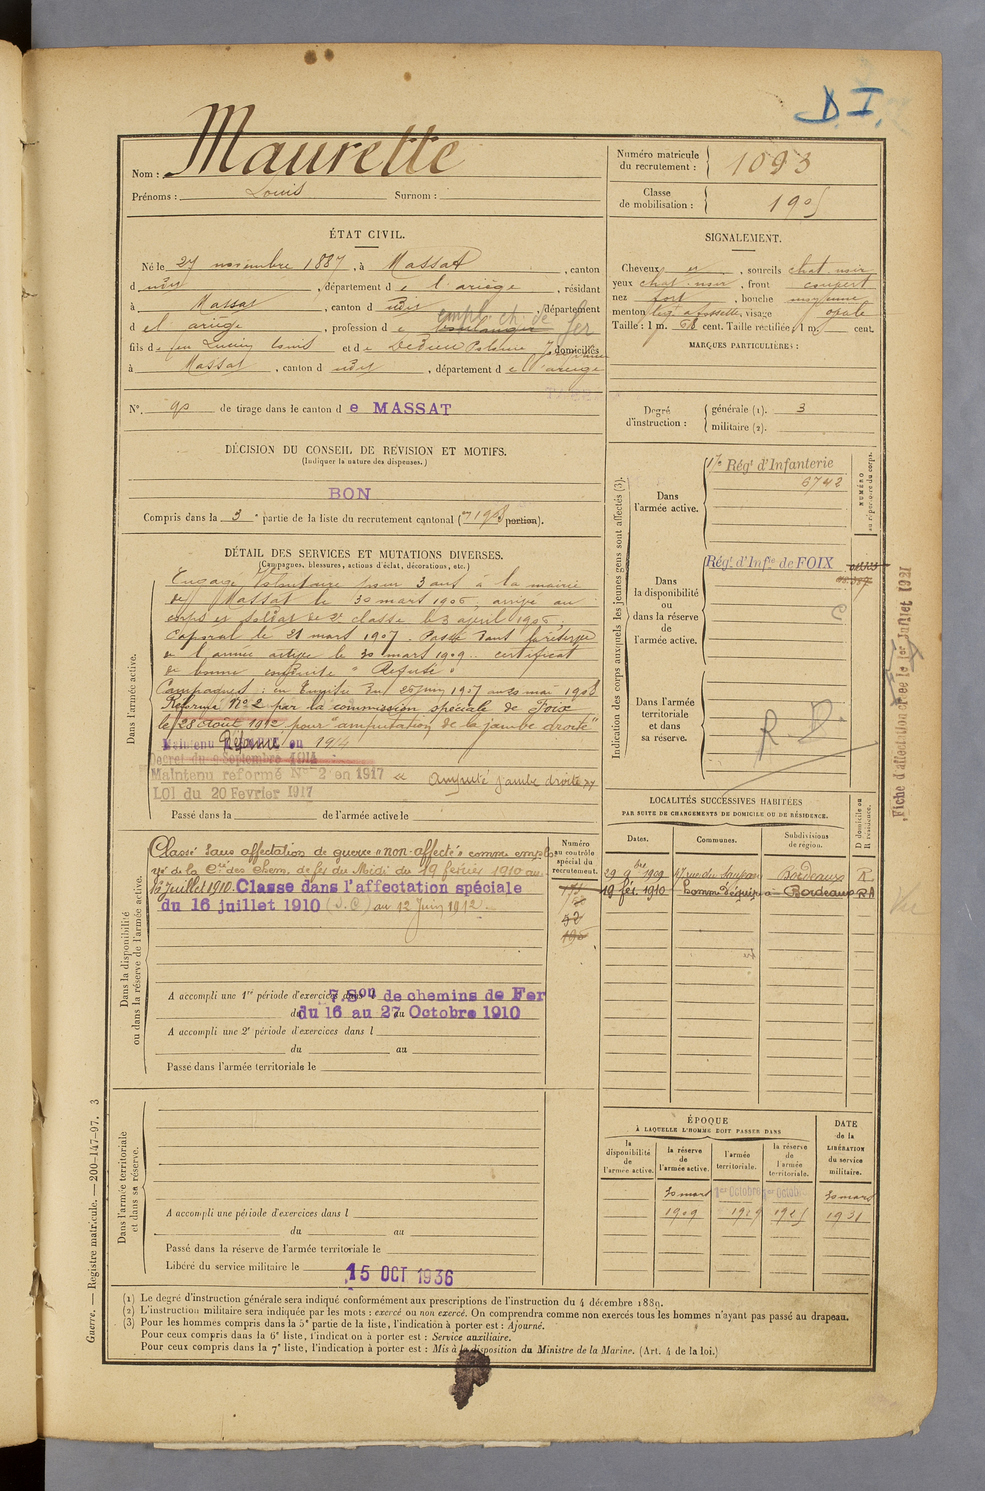 D.I.
Nom : Maurette
Prénoms : Louis Surnom :
Numéro matricule du recrutement : 1093
Classe de mobilisation : 1905
ÉTAT CIVIL.
Né le 27 novembre 1887, à Massat, canton
d udit, département de l'ariège, résidant
à Massat, canton d udit, département
d el ariège, profession d e boulanger empl. ch. de fer
fils d e feu Louis et d e Dedieu domiciliés
à Massat, canton d udit, département d e l'ariège
N°. 90 de tirage dans le canton d e MASSAT
SIGNALEMENT.
Cheveux et, sourcils chat. noir
yeux chat. noir, front couvert
nez fort, bouche moyenne
menton à fossette, visage ovale
Taille : 1 m. 68 cent. Taille rectifiée, 1 m. cent.
MARQUES PARTICULIÈRES :
Degré d'instruction : générale (1). 3
militaire (2).
DÉCISION DU CONSEIL DE RÉVISION ET MOTIFS.
(Indiquer la nature des dispenses.)
BON
Compris dans la 3e partie de la liste du recrutement cantonal (portion).
DÉTAIL DES SERVICES ET MUTATIONS DIVERSES.
(Campagnes, blessures, actions d'éclat, décorations, etc.)
Dans l'armée active.
Engagé Volontaire pour 3 ans à la mairie
de Massat le 30 mars 1906, arrivé au
corps et soldat de 2e classe le 3 avril 1906,
Caporal le 21 mars 1907. Passé dans la réserve
de l'armée active le 30 mars 1909. certificat
de bonne conduite "Refusé"
Campagnes : en Tunisie du 25 juin 1907 au 20 mai 1908
Réformé N° 2 par la commission spéciale de Foix
le 28 août 1912 pour "amputation de la jambe droite"
Maintenu Réformé en 1914
Décret du 9 Septembre 1914
Maintenu réformé N° 2 en 1917 "Amputé jambe droite"
LOI du 20 Fevrier 1917
Passé dans la de l'armée active le
Indication des corps auxquels les jeunes gens sont affectés (3).
Dans l'armée active.
17e Régt d'Infanterie
6742
NUMÉRO au répertoire du corps.
Dans la disponibilité ou dans la réserve de l'armée active.
Régt d'Infie de FOIX
C
Dans l'armée territoriale et dans sa réserve.
R.D.
Fiche d'affectation créée le 1er Juillet 1921
LOCALITÉS SUCCESSIVES HABITÉES
PAR SUITE DE CHANGEMENTS DE DOMICILE OU DE RÉSIDENCE.
D domicile ou R résidence.
Dates. Communes. Subdivisions de région.
29 9bre 1909 Bordeaux R.
19 fév. 1910 homme d'équipe à Bordeaux RA
Dans la disponibilité ou dans la réserve de l'armée active.
Numéro au contrôle spécial du recrutement.
Classé sans affectation de guerre "non-affecté" comme emplo-
yé de la Cie des Chem. de fer du Midi du 19 février 1910 au
15 Juillet 1910. Classe dans l'affectation spéciale
du 16 juillet 1910 (S.C) au 12 Juin 1912
A accompli une 1re période d'exercices dans 7e Son de chemins de Fer
du 16 au 27 Octobre 1910
A accompli une 2e période d'exercices dans l
du au
Passé dans l'armée territoriale le
Dans l'armée territoriale et dans sa réserve.
A accompli une période d'exercices dans l
du au
Passé dans la réserve de l'armée territoriale le
Libéré du service militaire le 15 OCT 1936
ÉPOQUE
À LAQUELLE L'HOMME DOIT PASSER DANS
la disponibilité de l'armée active. la réserve de l'armée active. l'armée territoriale. la réserve de l'armée territoriale.
DATE de la LIBÉRATION du service militaire.
30 mars 1er Octobre 1er Octobre 30 mars
1909 1931
Guerre. — Registre matricule. — 200-147-97. 3
(1) Le degré d'instruction générale sera indiqué conformément aux prescriptions de l'instruction du 4 décembre 1889.
(2) L'instruction militaire sera indiquée par les mots : exercé ou non exercé. On comprendra comme non exercés tous les hommes n'ayant pas passé au drapeau.
(3) Pour les hommes compris dans la 5e partie de la liste, l'indication à porter est : Ajourné.
Pour ceux compris dans la 6e liste, l'indication à porter est : Service auxiliaire.
Pour ceux compris dans la 7e liste, l'indication à porter est : Mis à la disposition du Ministre de la Marine. (Art. 4 de la loi.)